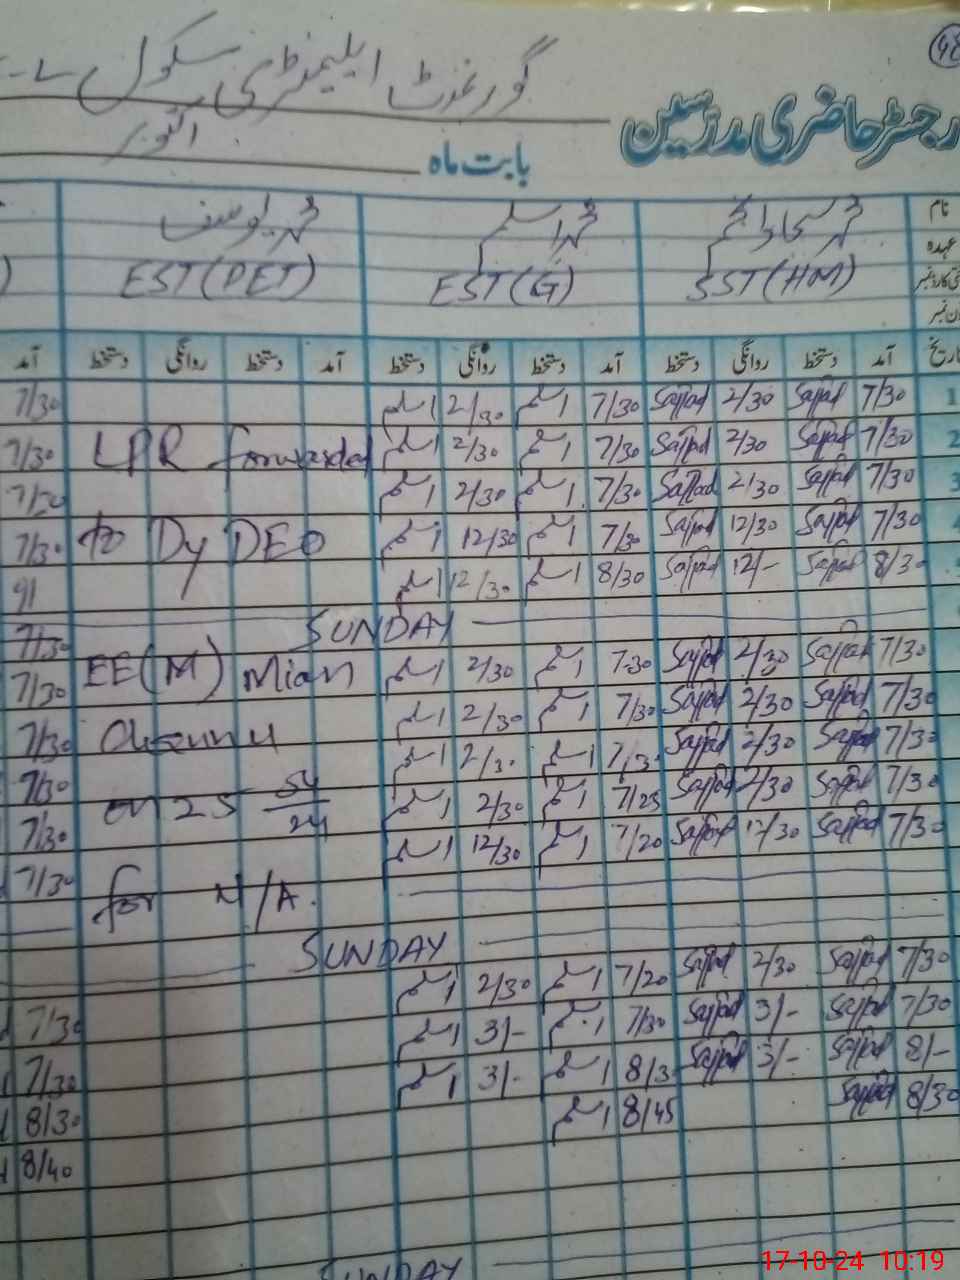 48
گورنمنٹ ایلیمنٹری سکول
رجسٹر حاضری مدرسین
بابت ماہ اکتوبر
نام محمد اسلم محمد یوسف
عہدہ
SST(HM) EST(G) EST(PET)
تاریخ آمد دستخط روانگی دستخط آمد دستخط روانگی دستخط آمد دستخط روانگی دستخط آمد
1 7/30 Sajjad 2/30 Sajjad 7/30 اسلم 2/30 اسلم 7/30
2 7/30 Sajjad 2/30 Sajjad 7/30 اسلم 2/30 اسلم LPR forwarded 7/30
3 7/30 Sajjad 2/30 Sajjad 7/30 اسلم 2/30 اسلم 7/30
4 7/30 Sajjad 12/30 Sajjad 7/30 اسلم 12/30 اسلم to Dy DEO 7/30
8/30 Sajjad 12/- Sajjad 8/30 اسلم 12/30 اسلم
SUNDAY 7/30
7/30 Sajjad 2/30 Sajjad 7-30 اسلم 2/30 اسلم EE(M) Mian 7/30
7/30 Sajjad 2/30 Sajjad 7/30 اسلم 2/30 اسلم Channu 7/30
7/30 Sajjad 2/30 Sajjad 7/30 اسلم 2/30 اسلم 7/30
7/30 Sajjad 2/30 Sajjad 7/25 اسلم 2/30 اسلم on 25 7/30
7/30 Sajjad 12/30 Sajjad 7/20 اسلم 12/30 اسلم 7/30
for N/A.
SUNDAY
7/30 Sajjad 2/30 Sajjad 7/20 اسلم 2/30 اسلم 7/30
7/30 Sajjad 3/- Sajjad 7/30 اسلم 3/- اسلم 7/30
8/- Sajjad 3/- Sajjad 8/30 اسلم 3/- اسلم 8/30
8/30 Sajjad 8/45 اسلم 8/40
SUNDAY
17-10-24 10:19